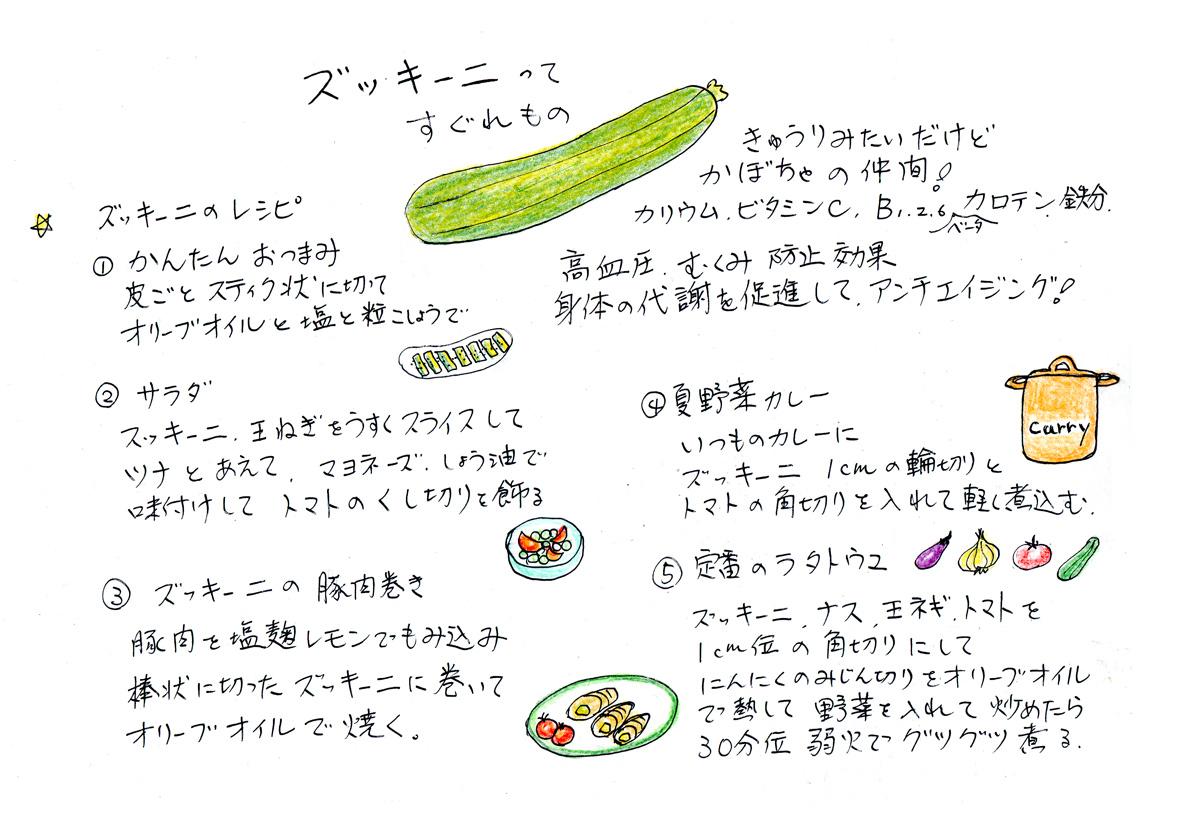 ズッキーニって
すぐれもの
きゅうりみたいだけど
かぼちゃの仲間!
カリウム、ビタミンC、B1.2.6 カロテン、鉄分、
ベータ
高血圧、むくみ防止効果
身体の代謝を促進して、アンチエイジング!
☆ ズッキーニのレシピ
① かんたん おつまみ
皮ごと スティク状に切って
オリーブオイルと塩と粒こしょうで
② サラダ
ズッキーニ、玉ねぎをうすくスライスして
ツナとあえて、マヨネーズ、しょう油で
味付けして トマトのくし切りを飾る
③ ズッキーニの豚肉巻き
豚肉を塩麹レモンでもみ込み
棒状に切ったズッキーニに巻いて
オリーブオイルで焼く。
④ 夏野菜カレー
いつものカレーに
ズッキーニ 1cmの輪切りと
トマトの角切りを入れて軽く煮込む、
Curry
⑤ 定番のラタトウユ
ズッキーニ、ナス、玉ネギ、トマトを
1cm位の角切りにして
にんにくのみじん切りをオリーブオイル
で熱して 野菜を入れて 炒めたら
30分位 弱火でグツグツ煮る、